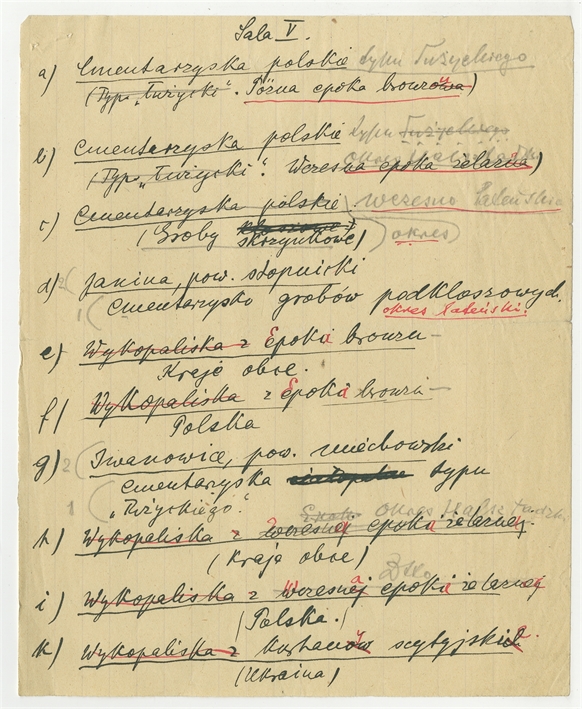 Sala V.
a) Cmentarzyska polskie typu Łużyckiego
(Typ „Łużycki”. Późna epoka bronzowa)
b) Cmentarzyska polskie typu Łużyckiego
(Typ „Łużycki”. Wczesna epoka żelazna)
c) Cmentarzyska polskie wczesno lateński
(Groby skrzynkowe) okres
d) Janina, pow. stopnicki
Cmentarzysko grobów podkloszowych.
okres lateński.
e) Wykopaliska z Epoki bronzu
Kraje obce.
f) Wykopaliska z Epoki bronzu
Polska
g) 2 Iwanowice, pow. miechowski
Cmentarzyska typu
1 „Łużyckiego”.
Okres Halsztadzki
h) Wykopaliska z wczesnej epoki żelaznej.
(Kraje obce)
i) Wykopaliska z wczesnej epoki żelaznej
(Polska.)
k) Wykopaliska z kurhanów scytyjskich.
(Ukraina)